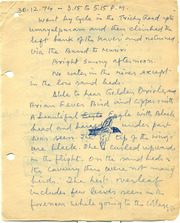 30.12.74 — 3.15 to 5.15 P.M.
Went by cycle in the Trichy Road upto
and then climbed the
left bank of the Kaveri and returned
via the Bund to
Bright sunny afternoon
No water in the river except
in the low sand beds.
Able to hear Golden Oriole and
Brian Fever Bird and
A beautiful Eagle with Black
head and under parts
was seen. Tip of the wings
are black. She rushed upward
in the flight. On the sand beds of
the Cauvery there were not many
birds. The help
includes few birds seen in the
forenoon while going to the College